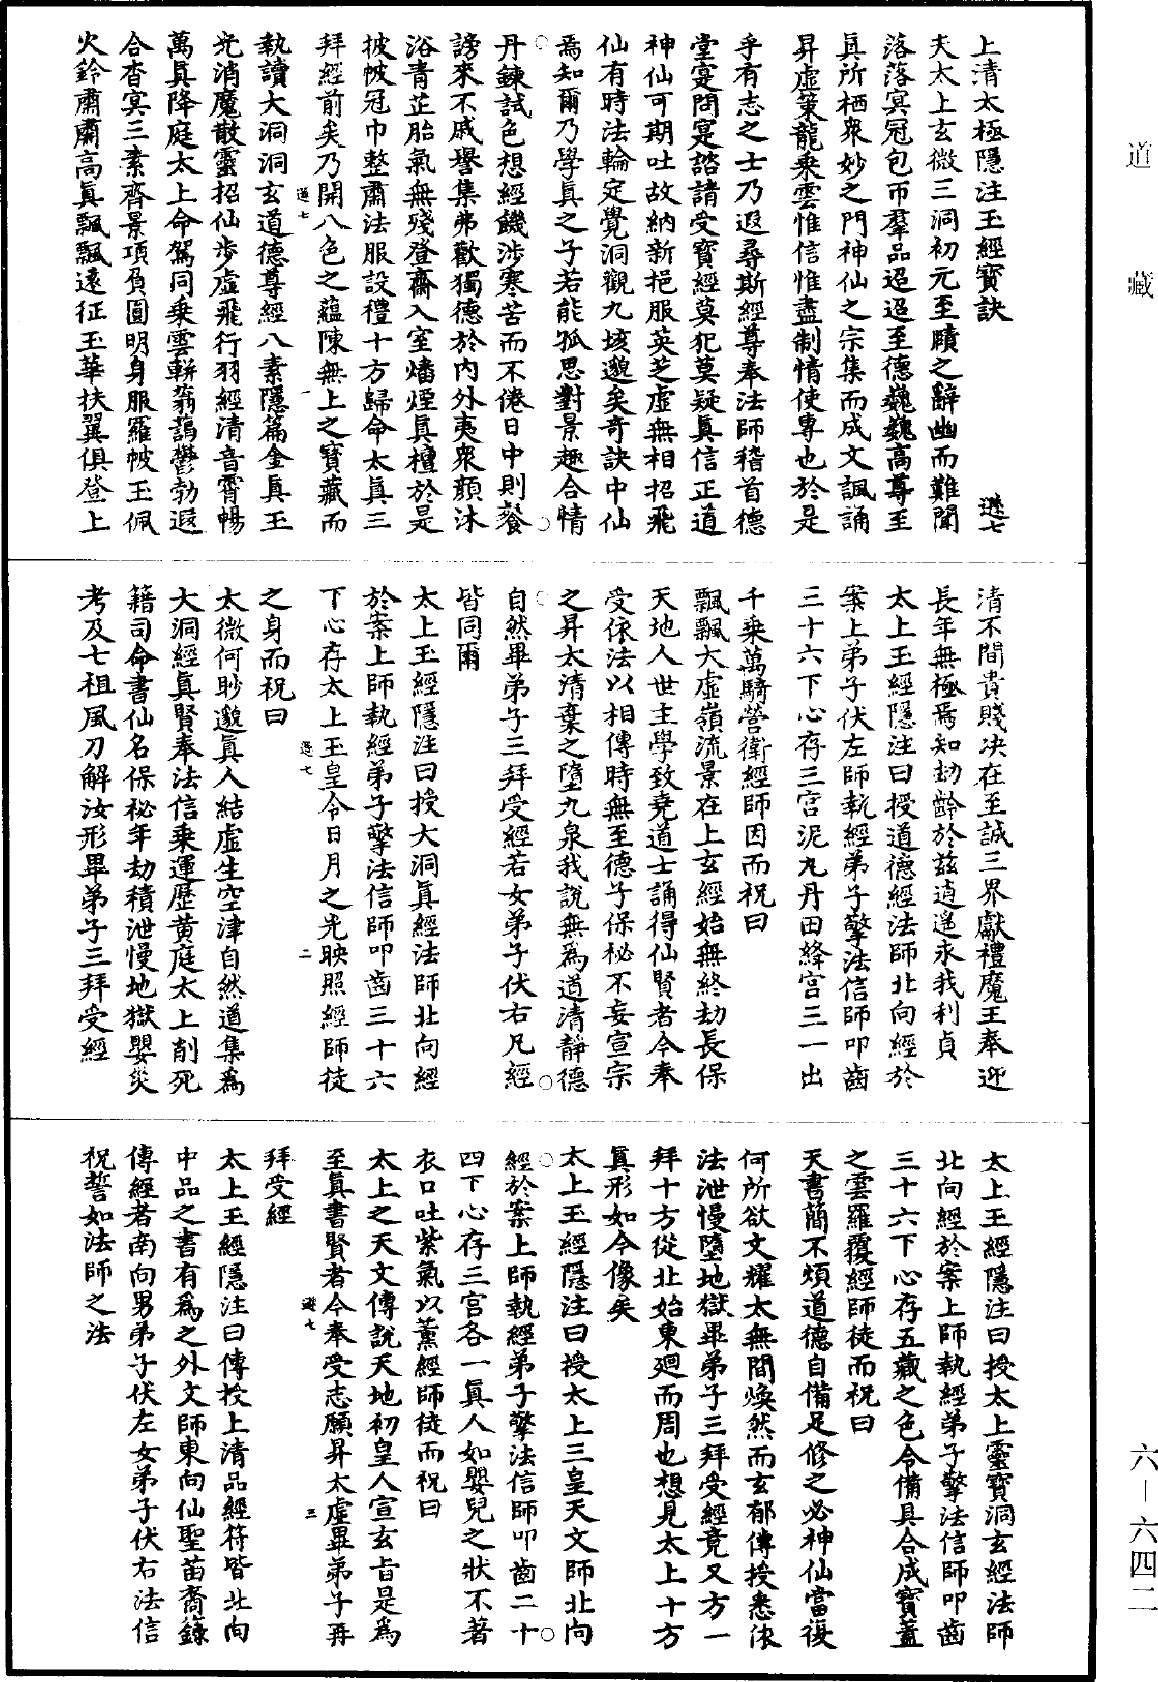 上清太極隱注玉經寶訣　遜七
夫太上玄微三洞初元至賾之辭幽而難聞
落落冥冠包帀羣品迢迢至德巍巍高尊至
眞所栖衆妙之門神仙之宗集而成文諷誦
昇虛策龍乘雲惟信惟盡制情使專也於是
乎有志之士乃遐尋斯經尊奉法師稽首德
堂寔問寔諮諸受寶經莫犯莫疑眞信正道
神仙可期吐故納新挹服英芝虛無相招飛
仙有時法輪定覺洞觀九垓邈矣奇訣中仙
焉知爾乃學眞之子若能孤思對景趣合情
丹鍊試色想經饑涉寒苦而不倦日中則餐
謗來不戚譽集弗歡獨德於內外夷衆顏沐
浴青芷胎氣無殘登齋入室燔煙眞檀於是
披帔冠巾整肅法服設禮十方歸命太眞三
拜經前矣乃開八色之蘊陳無上之寶藏而
遜七　一
執讀大洞洞玄道德尊經八素隱篇金眞玉
光消魔散靈招仙步虛飛行羽經清音霄暢
萬眞降庭太上命駕同乘雲輧蓊藹鬱勃遐
合杳冥三素齊景項負圓明身服羅帔玉佩
火鈴肅肅高眞飄飄遠征玉華扶翼俱登上
清不間貴賤决在至誠三界獻禮魔王奉迎
長年無極焉知劫齡於兹逍遥永我利貞
太上玉經隱注曰授道德經法師北向經於
案上弟子伏左師執經弟子擎法信師叩齒
三十六下心存三宮泥丸丹田絳宮三一出
千乘萬騎營衛經師因而祝曰
飄飄大虛嶺流景在上玄經始無終劫長保
天地人世主學致堯道士誦得仙賢者今奉
受依法以相傳時無至德子保秘不妄宣宗
之昇太清棄之墮九泉我說無爲道清靜德
自然畢弟子三拜受經若女弟子伏右凡經
皆同爾
太上玉經隱注曰授大洞眞經法師北向經
於案上師執經弟子擎法信師叩齒三十六
下心存太上玉皇令日月之光映照經師徒
遜七　二
之身而祝曰
太微何眇邈眞人結虛生空津自然道集爲
大洞經眞賢奉法信乘運歷黃庭太上削死
籍司命書仙名保秘年劫積泄慢地獄嬰災
考及七祖風刀解汝形畢弟子三拜受經
太上玉經隱注曰授太上靈寶洞玄經法師
北向經於案上師執經弟子擎法信師叩齒
三十六下心存五藏之色令備具合成寶蓋
之雲羅覆經師徒而祝曰
天書簡不煩道德自備足修之必神仙當復
何所欲文耀太無間煥然而玄郁傳授悉依
法泄慢墮地獄畢弟子三拜受經竟又方一
拜十方從北始東廻而周也想見太上十方
眞形如今像矣
太上玉經隱注曰授太上三皇天文師北向
經於案上師執經弟子擎法信師叩齒二十
四下心存三宮各一眞人如嬰兒之狀不著
衣口吐紫氣以薰經師徒而祝曰
太上之天文傳說天地初皇人宣玄旨是爲
至眞書賢者今奉受志願昇太虛畢弟子再
遜七　三
拜受經
太上玉經隱注曰傳授上清品經符皆北向
中品之書有爲之外文師東向仙聖苗裔籙
傳經者南向男弟子伏左女弟子伏右法信
祝誓如法師之法
道藏
六—六四二